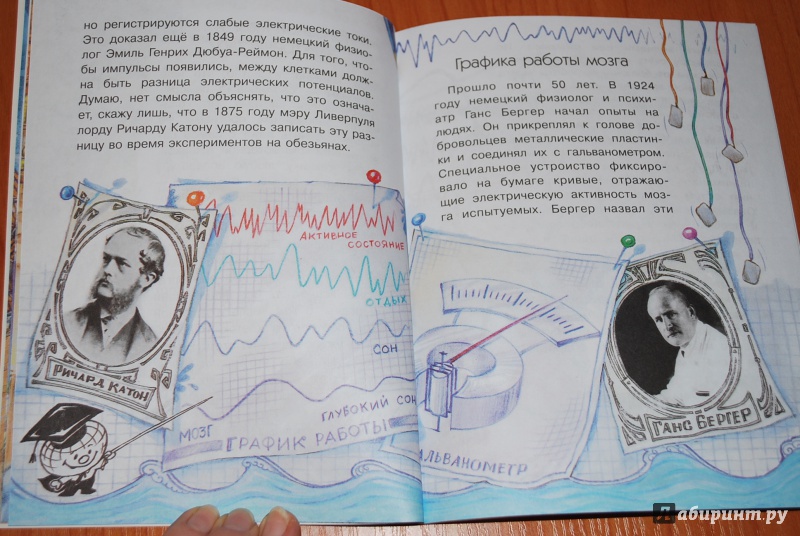 но регистрируются слабые электрические токи.
Это доказал ещё в 1849 году немецкий физио-
лог Эмиль Генрих Дюбуа-Реймон. Для того, что-
бы импульсы появились, между клетками долж-
на быть разница электрических потенциалов.
Думаю, нет смысла объяснять, что это означа-
ет, скажу лишь, что в 1875 году мэру Ливерпуля
лорду Ричарду Катону удалось записать эту раз-
ницу во время экспериментов на обезьянах.
АКТИВНОЕ
СОСТОЯНИЕ
ОТДЫХ
СОН
ГЛУБОКИЙ СОН
МОЗГ
ГРАФИК РАБОТЫ
РИЧАРД КАТОН
Графика работы мозга
Прошло почти 50 лет. В 1924
году немецкий физиолог и психи-
атр Ганс Бергер начал опыты на
людях. Он прикреплял к голове до-
бровольцев металлические пластин-
ки и соединял их с гальванометром.
Специальное устройство фиксиро-
вало на бумаге кривые, отражаю-
щие электрическую активность моз-
га испытуемых. Бергер назвал эти
АЛЬВАНОМЕТР
ГАНС БЕРГЕР
Лабиринт.ру